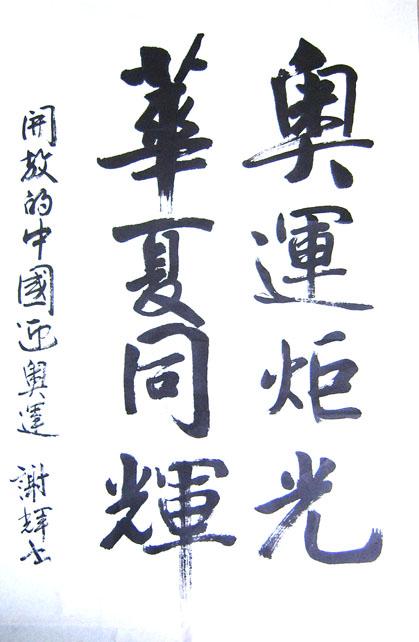 奧運炬光
華夏同輝
開放的中國迎奧運 謝輝书